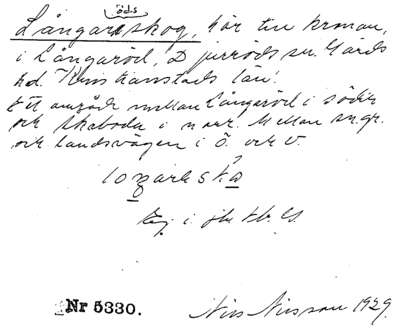 Långarödsskog, hör till kronan,
i Långaröd, Djurröds sn. Gärds
hd. Kristianstads län.
Ett område mellan Långaröd i söder
och Skeboda i norr. Mellan sn.gr.
och landsvägen i Ö. och V.
Ej i
Nr 5330.
Nils Nilsson 1929.